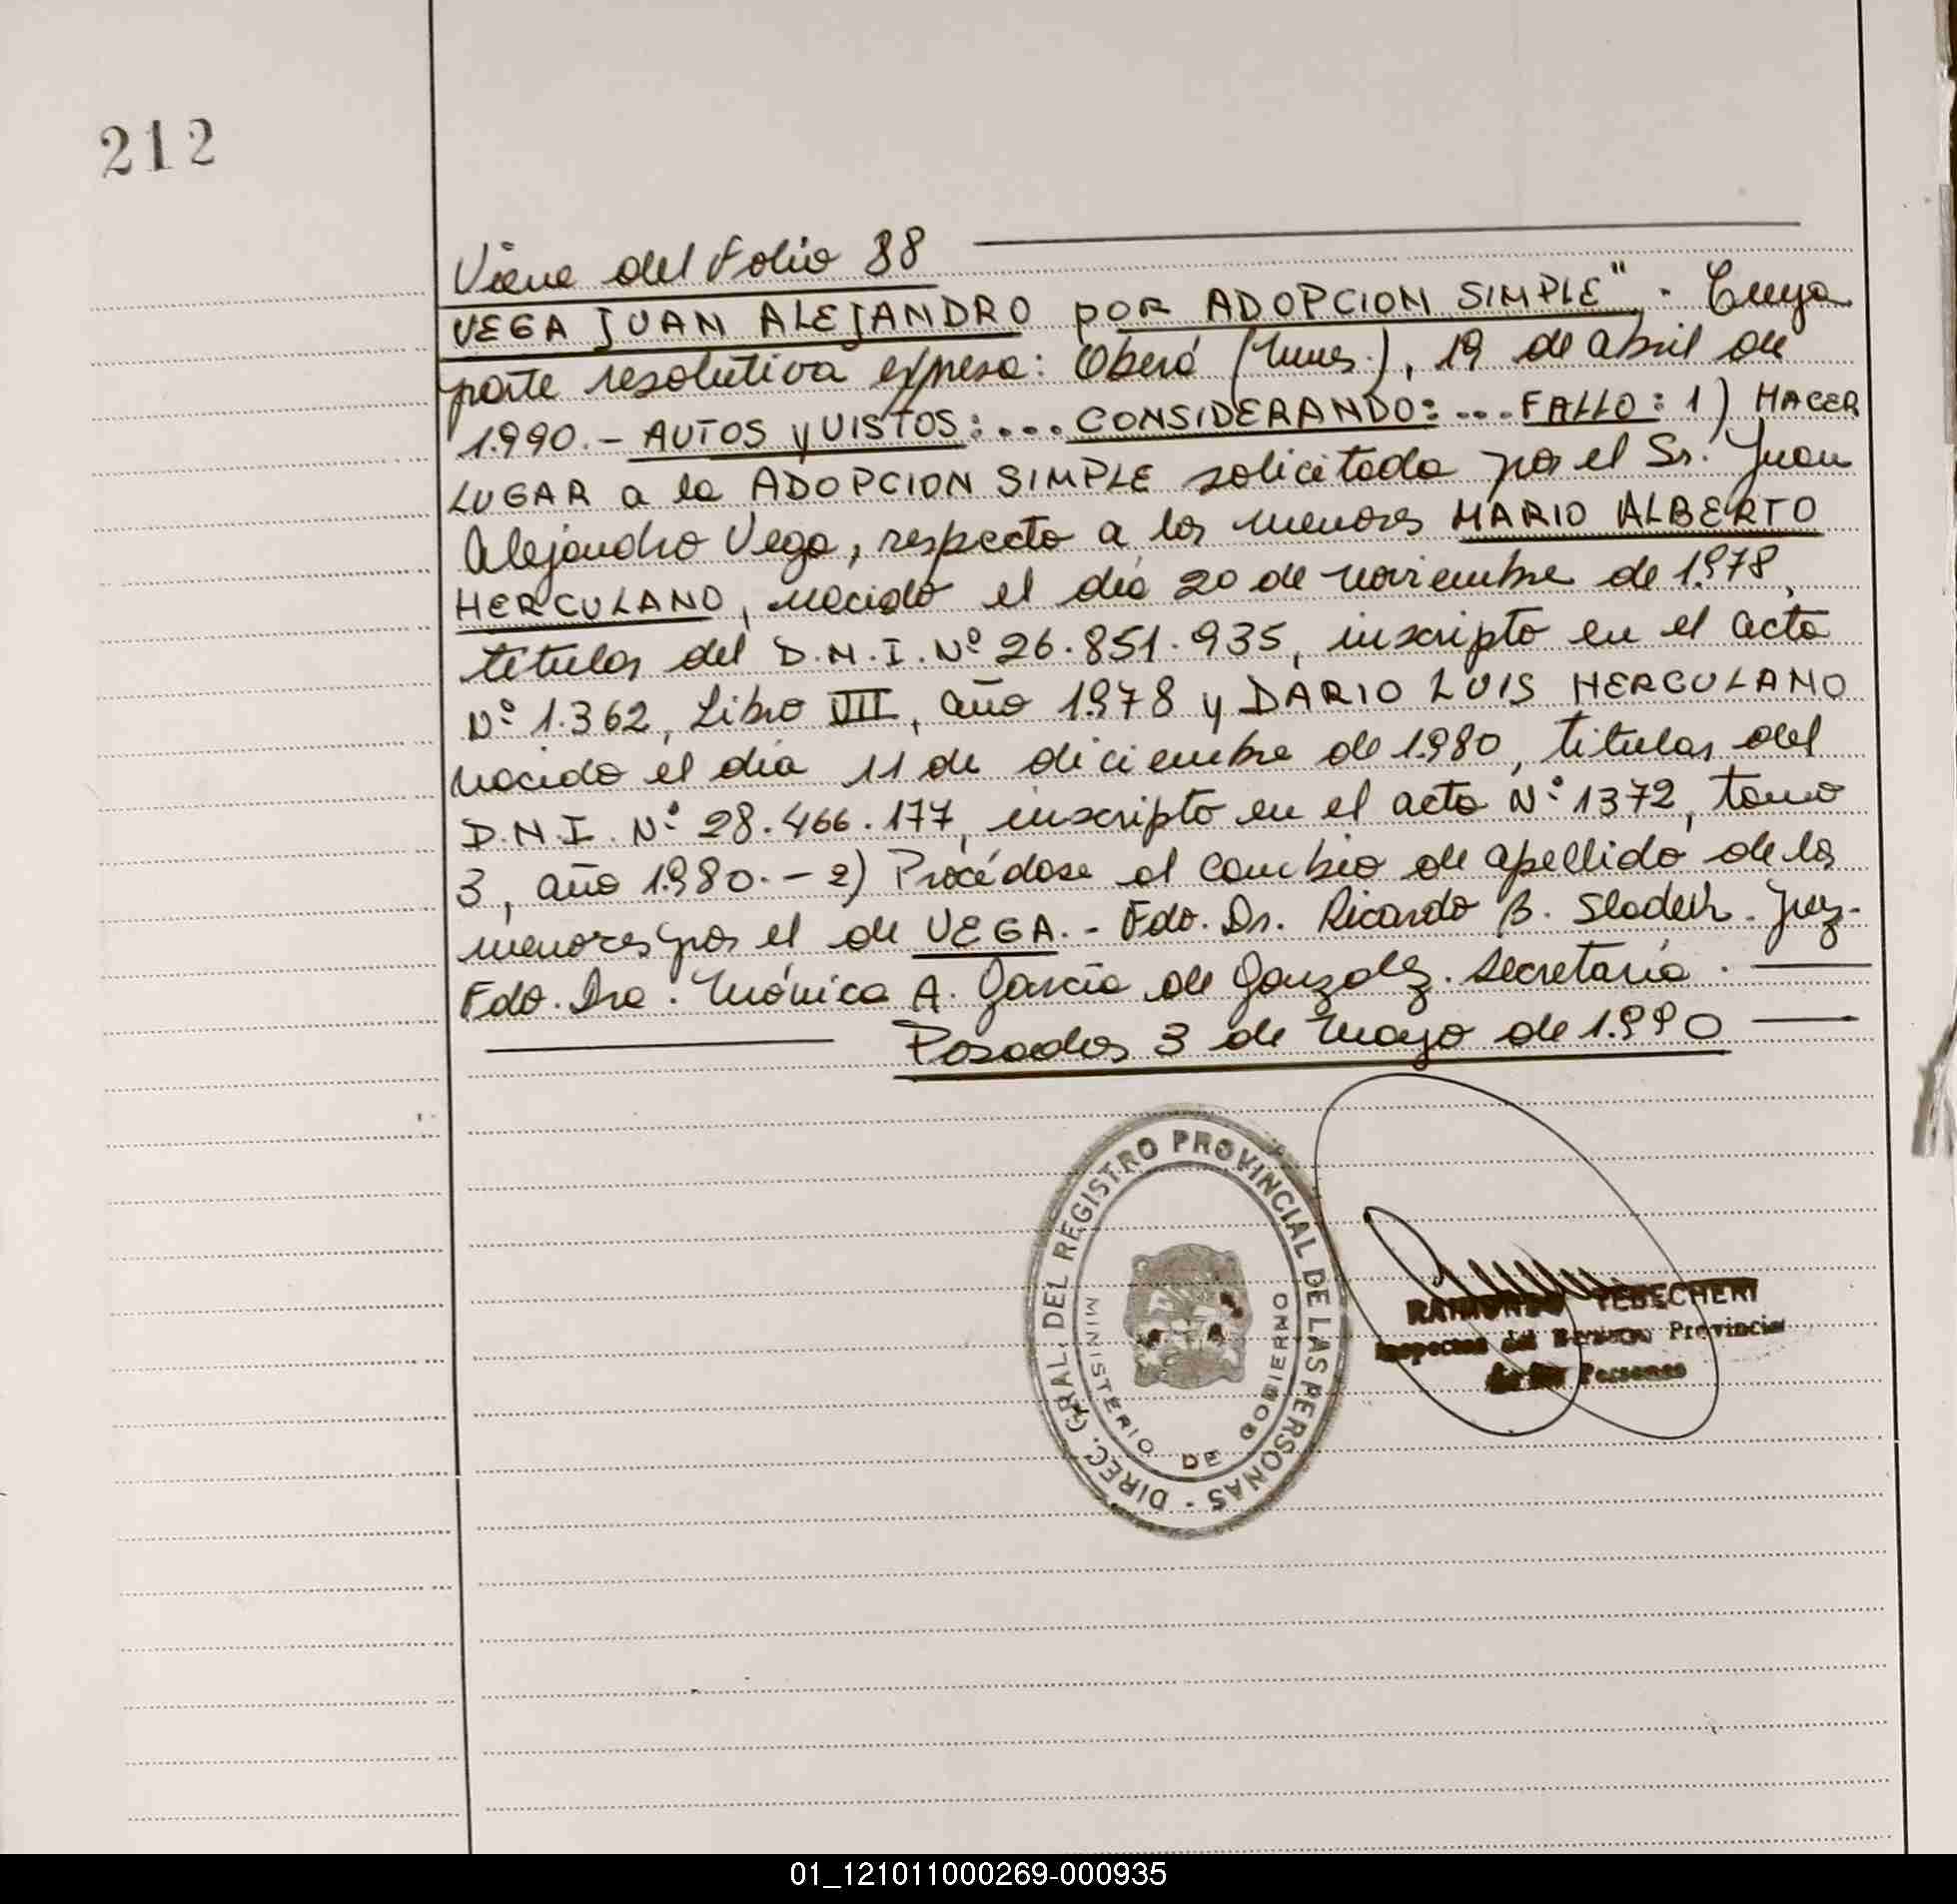 212
Viene del Folio 88
VEGA JUAN ALEJANDRO por ADOPCION SIMPLE". Cuya
parte resolutiva expresa: Oberá (Mnes.), 19 de abril de
1.990.- AUTOS y VISTOS:... CONSIDERANDO:... FALLO: 1) HACER
LUGAR a la ADOPCION SIMPLE solicitada por el Sr. Juan
Alejandro Vega, respecto a los menores MARIO ALBERTO
HERCULANO, nacido el día 20 de noviembre de 1.978,
titular del D.N.I. Nº 26.851.935, inscripto en el acta
Nº 1.362, Libro VII, año 1.978 y DARIO LUIS HERCULANO
nacido el día 11 de diciembre de 1.980, titular del
D.N.I. Nº 28.466.177, inscripto en el acta Nº 1372, tomo
3, año 1.980.- 2) Procédase al cambio de apellido de los
menores por el de VEGA.- Fdo. Dr. Ricardo B. Juez-
Fdo. Dra. Mónica A. García de González. Secretaria.
Posadas 3 de Mayo de 1.990
DIREC. GRAL. DEL REGISTRO PROVINCIAL DE LAS PERSONAS -
MINISTERIO DE GOBIERNO
RAIMUNDO
Inspector del Registro Provincial
de las Personas
01_121011000269-000935